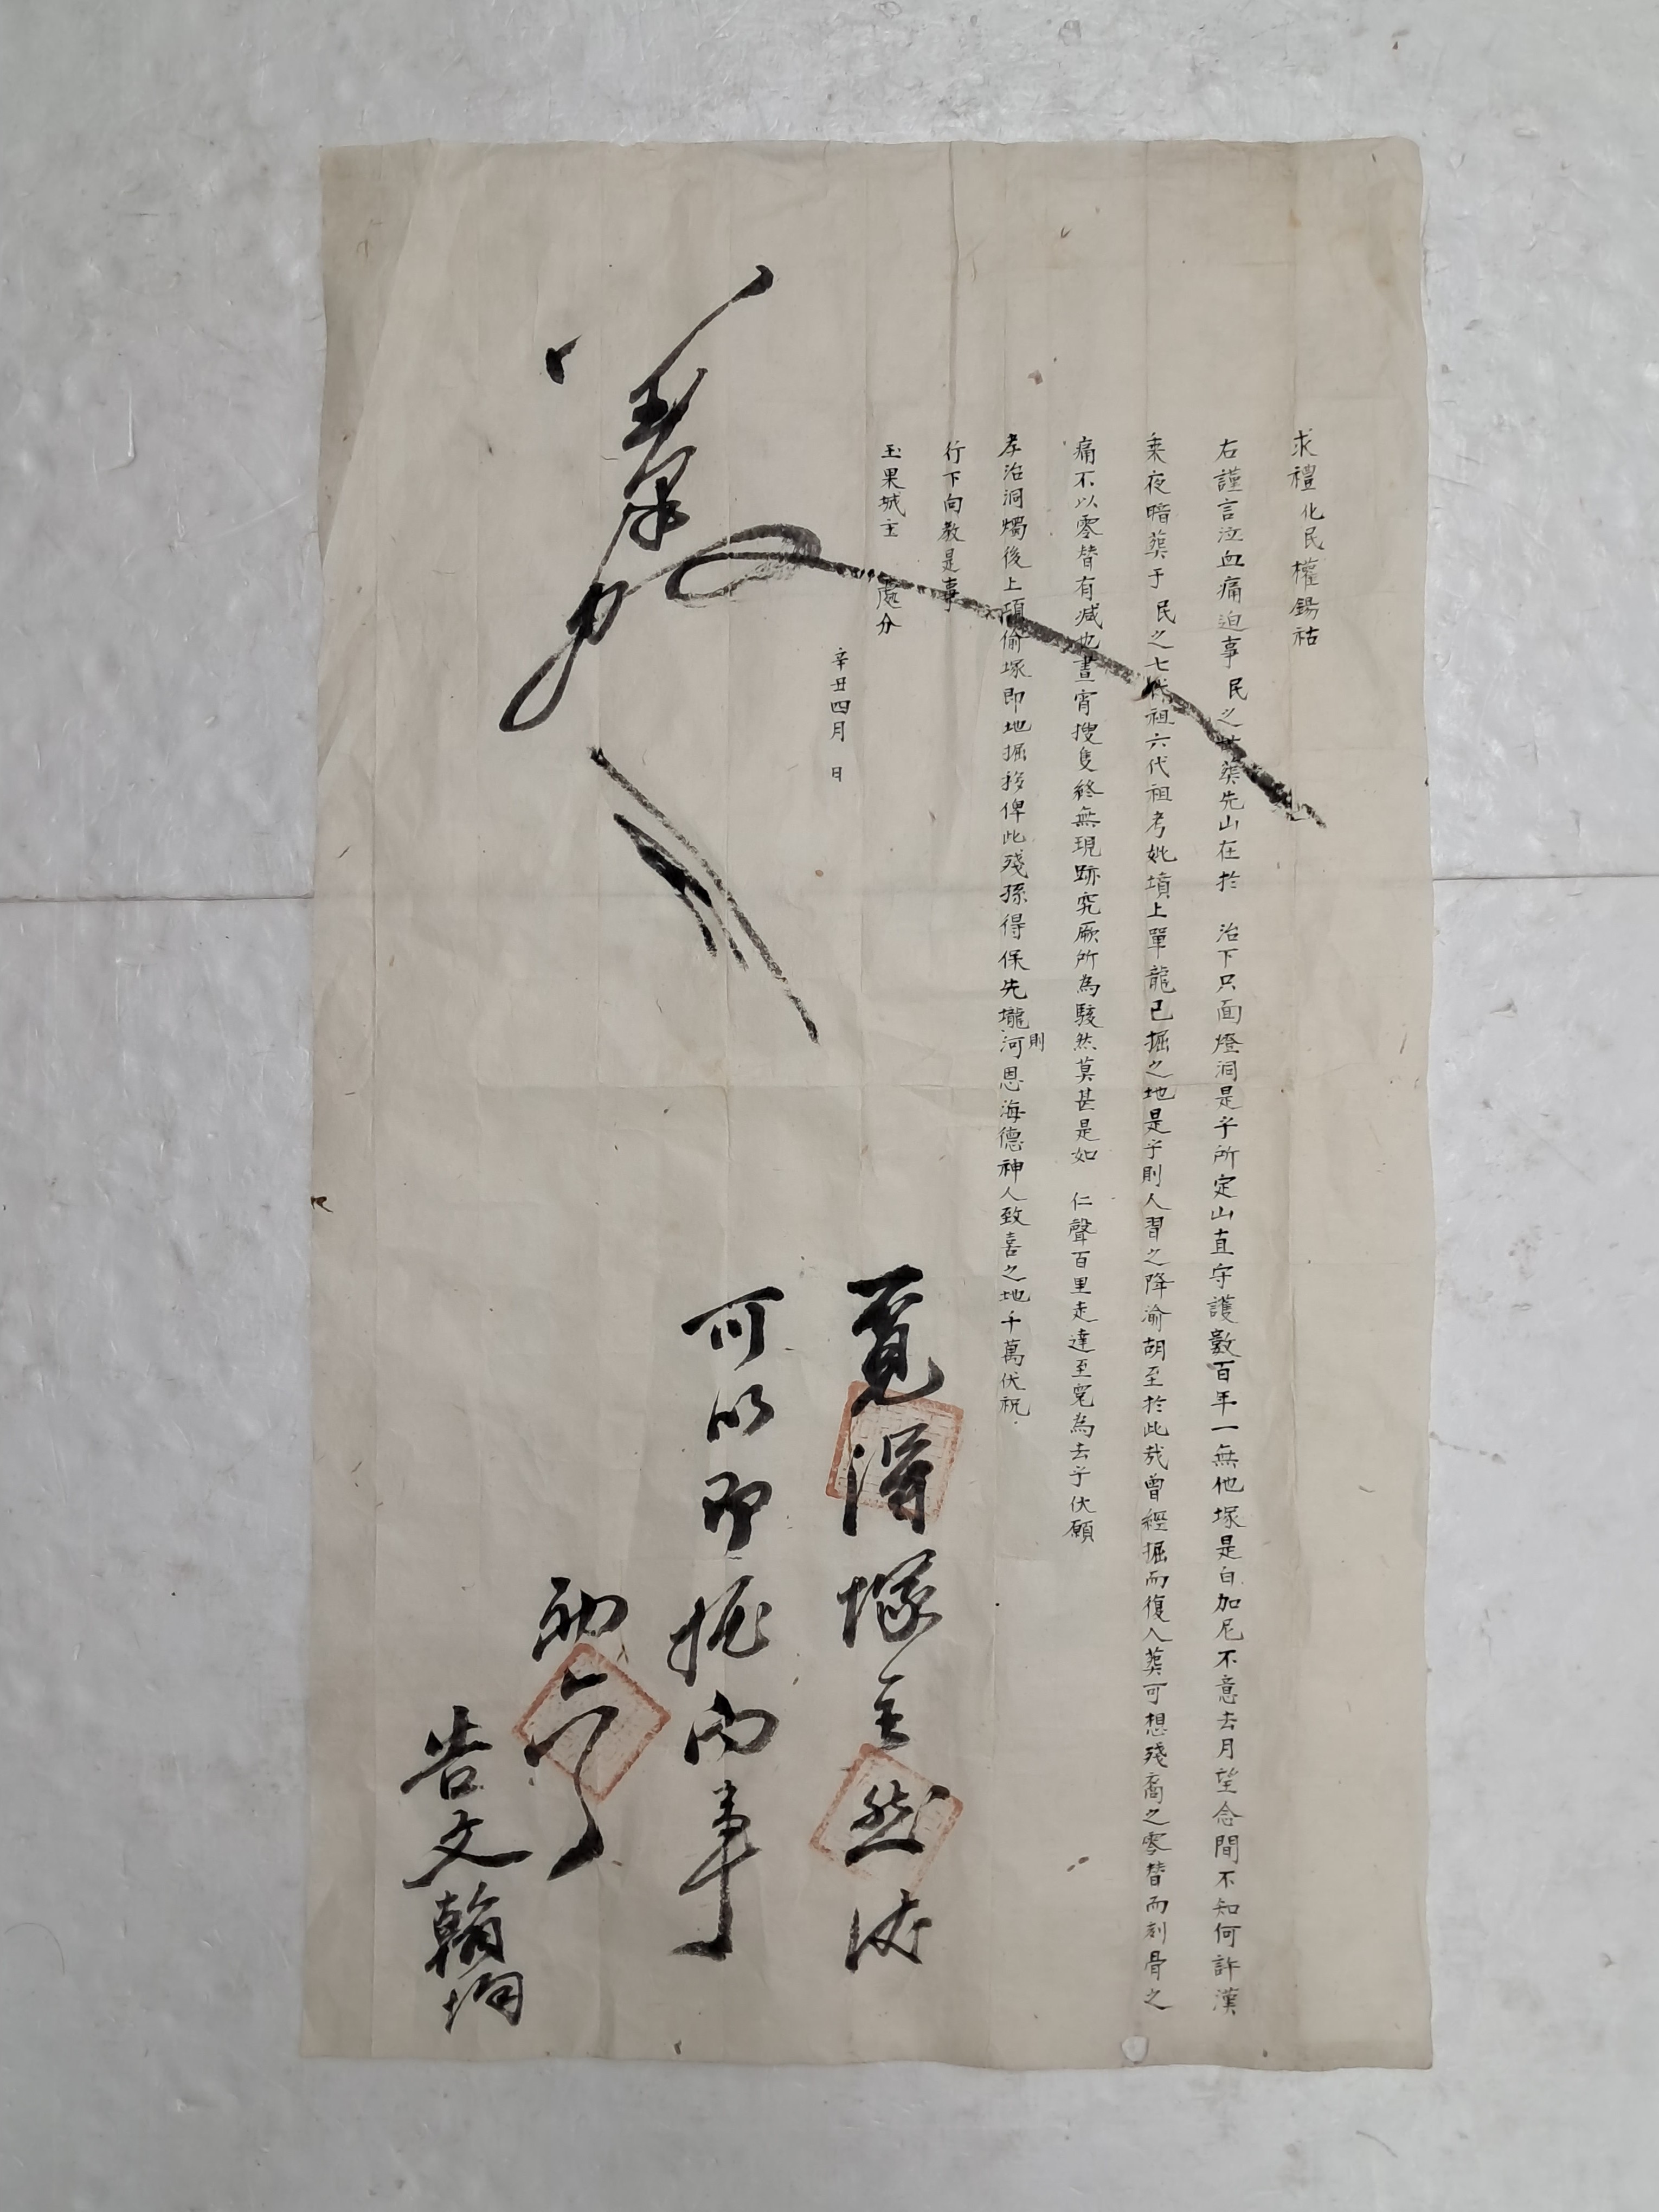 求禮化民權錫祜
右謹言泣血痛迫事民之世葬先山在於 治下只面燈洞是乎所定山直守護數百年一無他塚是白加尼不意去月望念間不知何許漢
乘夜暗葬于民之七代祖六代祖考妣墳上單龍已掘之地是乎則人習之降渝胡至於此哉曾經掘而復入葬可想殘裔之零替而刻骨之
痛不以零替有减也晝宵搜隻終無現跡究厥所為駭然莫甚是如 仁聲百里走達至冤為去乎伏願
孝治洞燭後上項偷塚即地掘移俾此殘孫得保先壠則河恩海德神人致喜之地千萬伏祝
行下向教是事
玉果城主 處分
辛丑四月 日
覓得塚主然後
可以即掘向事
初六
告文翰炯